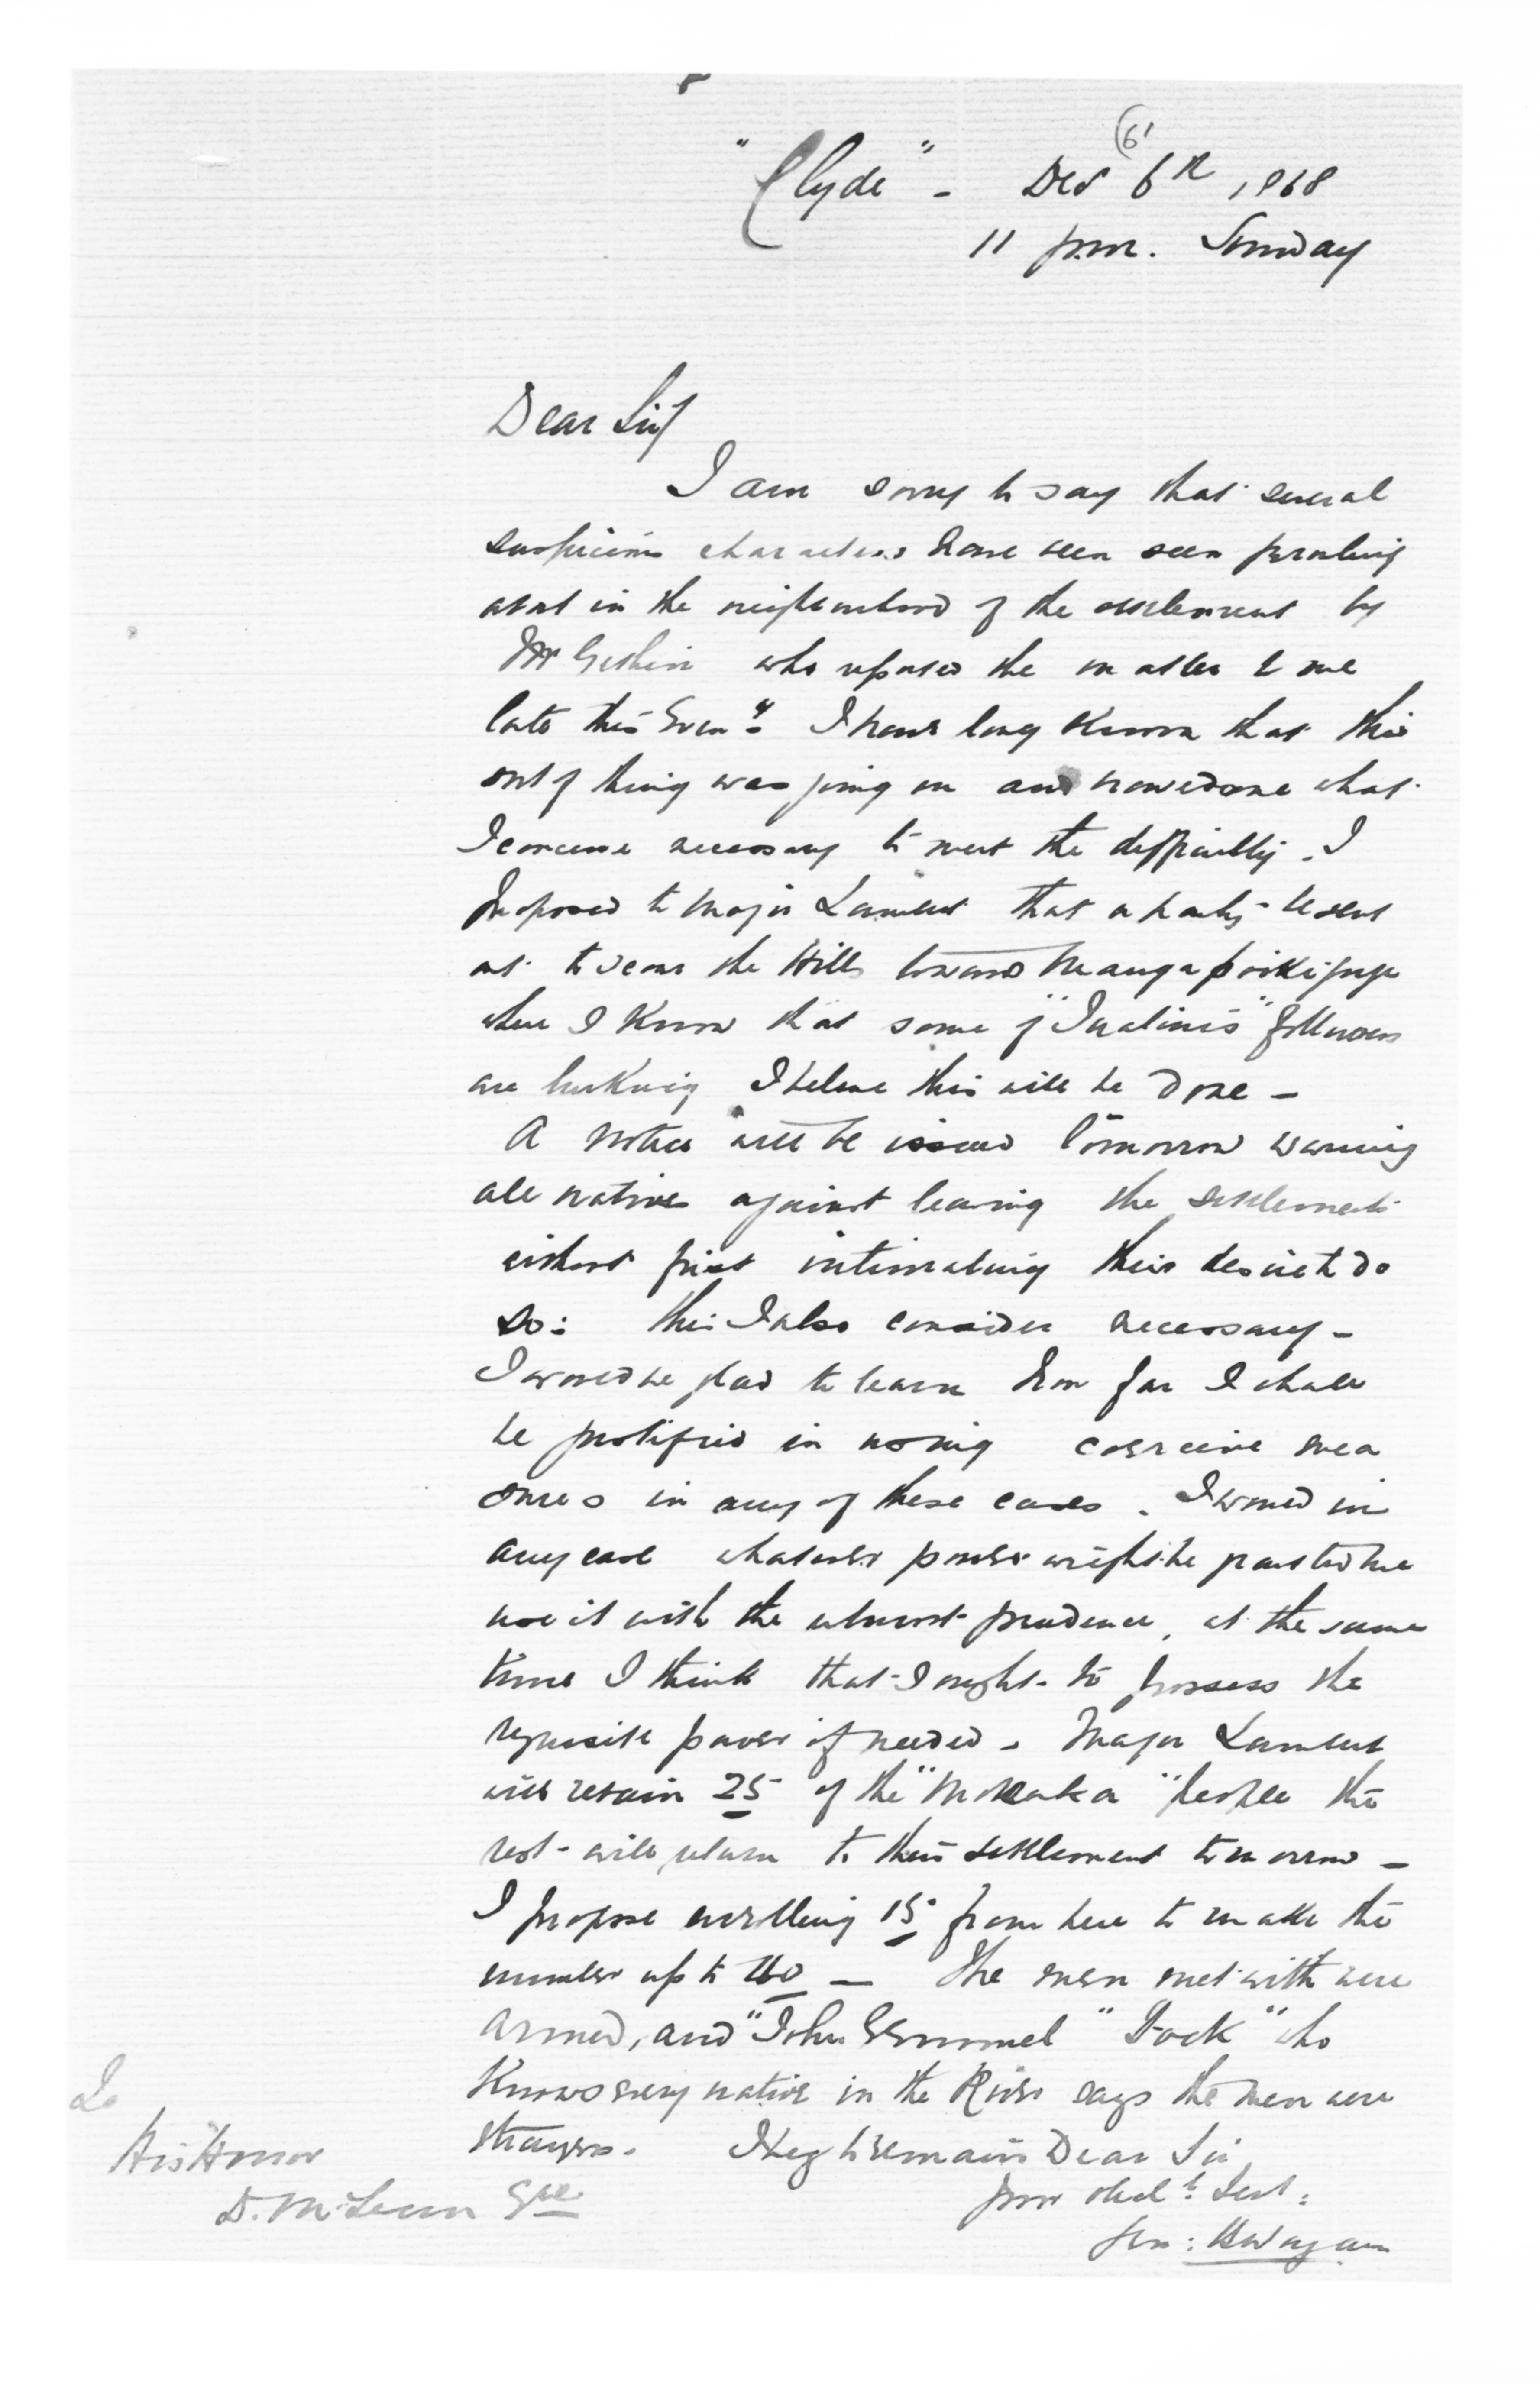 (6)
"Clyde" - Decr 6th 1868
11 p.m. Sunday
Dear Sir/
I am sorry to say that several
suspicious characters have been seen prowling
about in the neighbourhood of the settlement by
Mr who reported the matter to me
late this Eveng. I have long known that this
sort of thing was going on and have done what
I conceive necessary to meet the difficulty. I
proposed to Major Lambert that a party be sent
out to scour the Hills toward
where I know that some of " " followers
are lurking I believe this will be done -
A notice will be issued tomorrow warning
all natives against leaving the settlement
without first intimating their desire to do
so: this I also consider necessary -
I would be glad to learn how far I shall
be justified in using coercive mea
sures in any of these cases. I would in
any case whatever power might be granted me
use it with the utmost prudence, at the same
time I think that I ought to possess the
requisite power if needed - Major Lambert
will retain 25 of the "Mohaka" people the
rest will return to their settlement tomorrow -
I propose enrolling 15 from here to make the
number up to 40 - The men met with were
armed, and "John" " " who
Knows every native in the River says the men were
strangers. I beg to remain Dear Sir
Your Obedt Servt:
To
His Honor
D. McLean Esqre